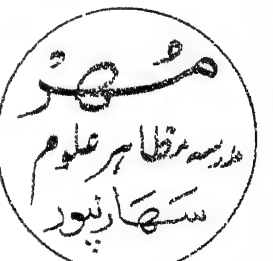 مُهْر
مدرسہ مظاہر علوم
سَهَارنپور